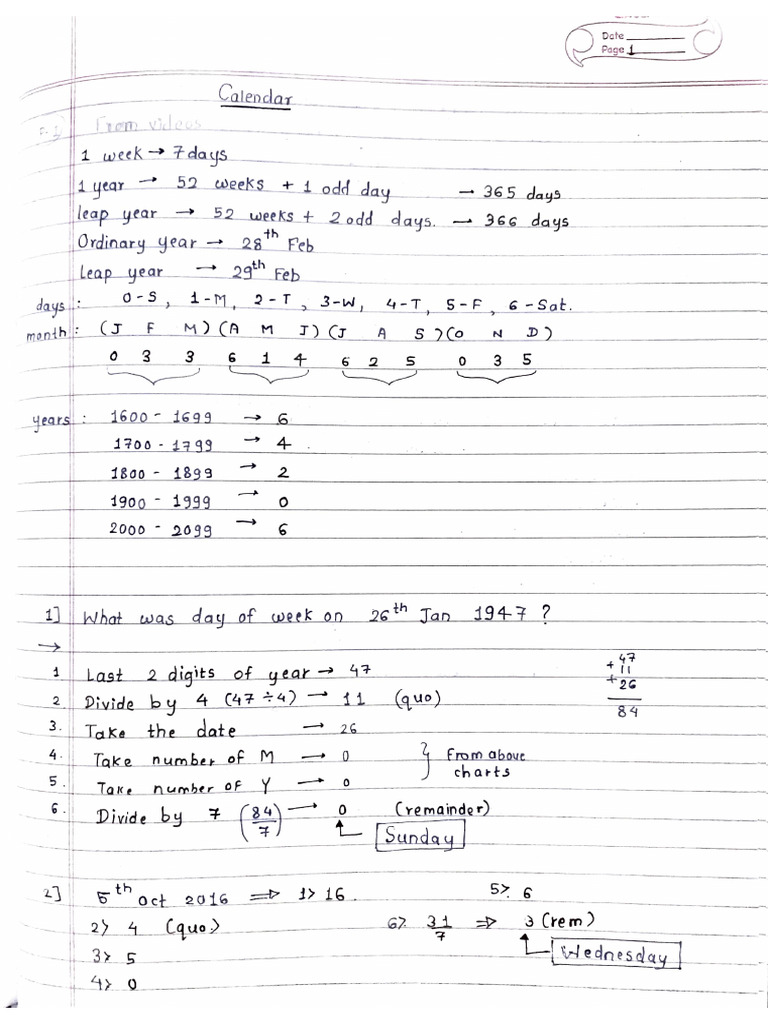 Date
Page 1
Calendar
From videos
1 week → 7 days
1 year → 52 weeks + 1 odd day → 365 days
leap year → 52 weeks + 2 odd days. → 366 days
Ordinary year → 28th Feb
Leap year → 29th Feb
days : 0-S, 1-M, 2-T, 3-W, 4-T, 5-F, 6-Sat.
month : (J F M) (A M J) (J A S) (O N D)
0 3 3 6 1 4 6 2 5 0 3 5
years : 1600 - 1699 → 6
1700 - 1799 → 4
1800 - 1899 → 2
1900 - 1999 → 0
2000 - 2099 → 6
1] What was day of week on 26th Jan 1947 ?
→
1 Last 2 digits of year → 47
2. Divide by 4 (47 ÷ 4) → 11 (quo)
3. Take the date → 26
4. Take number of M → 0
5. Take number of Y → 0
From above
charts
6. Divide by 7 (84/7) → 0 (remainder)
Sunday
+ 47
11
+ 26
84
2] 5th Oct 2016 ⇒ 1> 16
2> 4 (quo)
3> 5
4> 0
5> 6
6> 31/7 ⇒ 3 (rem)
Wednesday